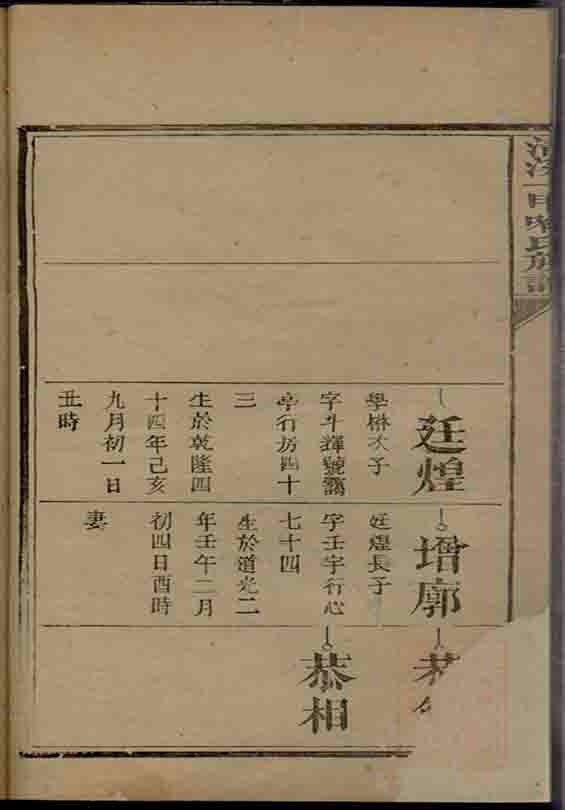 氏族譜
廷煌
學楙次子
字斗輝號靄
亭行房四十
三
生於乾隆四
十四年己亥
九月初一日
丑時
增廓
廷煌長子
字壬宇行心
七十四
生於道光二
年壬午二月
初四日酉時
妻
恭
恭相